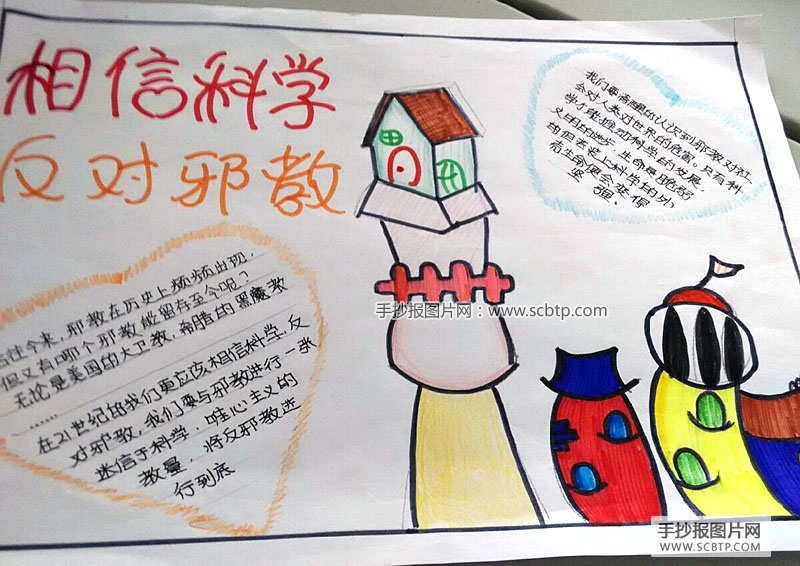 相信科学
反对邪教
我们要清醒的认识到邪教对社
会对人类对世界的危害。只有科
学才能推动科学的发展,
文明的进步,生命是脆弱
的但若装上科学的外
壳生命便会变得
坚强。
古往今来,邪教在历史上频频出现,
但又有哪个邪教能留存至今呢?
无论是美国的大卫教,希腊的黑魔教
……
在21世纪的我们更应该相信科学,反
对邪教,我们要与邪教进行一张
迷信于科学,唯心主义的
教量,将反邪教进
行到底
手抄报图片网:www.scbtp.com
手抄报图片网
WWW.SCBTP.COM